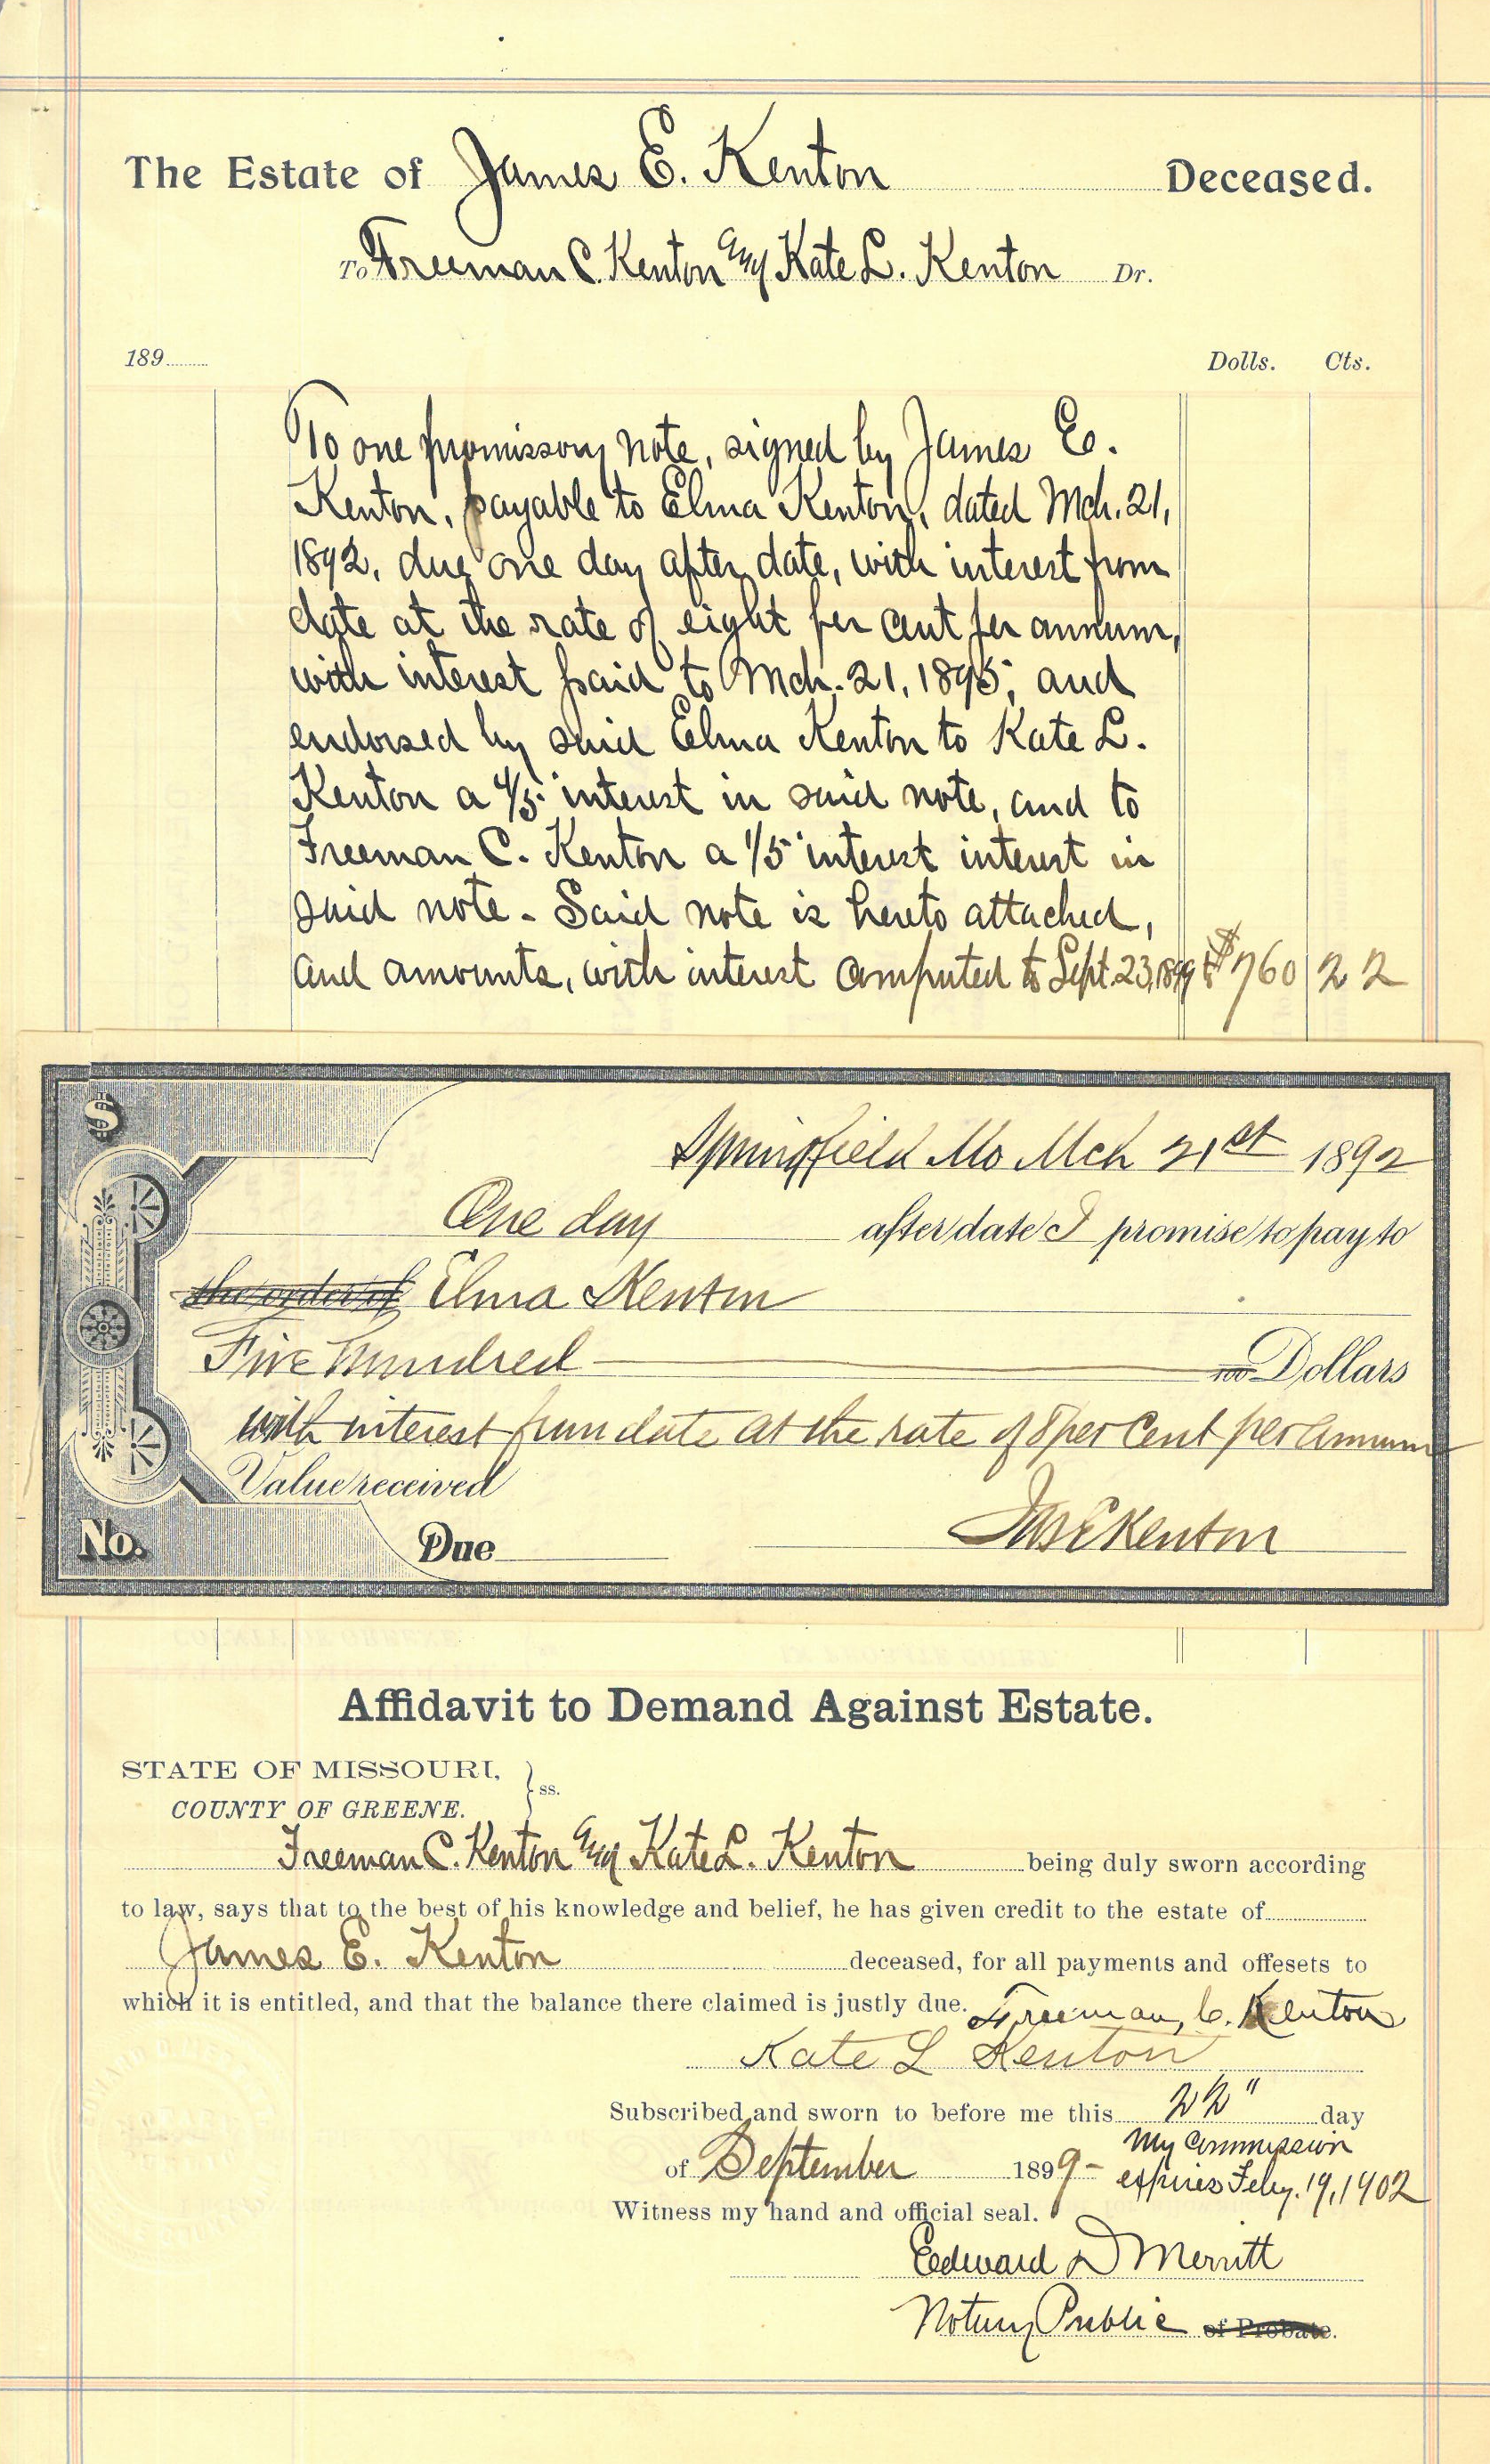 The Estate of James E. Kenton Deceased.
To Freeman C. Kenton and Kate L. Kenton Dr.
189 Dolls. Cts.
To one promissory note, signed by James E.
Kenton, payable to Elma Kenton, dated Mch. 21,
1892, due one day after date, with interest from
date at the rate of eight per cent per annum,
with interest paid to Mch. 21, 1895, and
endorsed by said Elma Kenton to Kate L.
Kenton a 4/5 interest in said note, and to
Freeman C. Kenton a 1/5 interest interest in
said note - Said note is hereto attached,
and amounts, with interest computed to Sept. 23, 1899 to $760 22
$
Springfield Mo Mch 21st 1892
One day after date I promise to pay to
the order of Elma Kenton
Five Hundred 100 Dollars
with interest from date at the rate of 8 per Cent per Annum
Value received
Jas E Kenton
No. Due
Affidavit to Demand Against Estate.
STATE OF MISSOURI,
COUNTY OF GREENE. } ss.
Freeman C. Kenton and Kate L. Kenton being duly sworn according
to law, says that to the best of his knowledge and belief, he has given credit to the estate of
James E. Kenton deceased, for all payments and offesets to
which it is entitled, and that the balance there claimed is justly due. Freeman, C. Kenton
Kate L Kenton
Subscribed and sworn to before me this 22" day
of September 1899- My Commission
expires Feby. 19, 1902
Witness my hand and official seal.
Edward D Merritt
Notary Public of Probate.